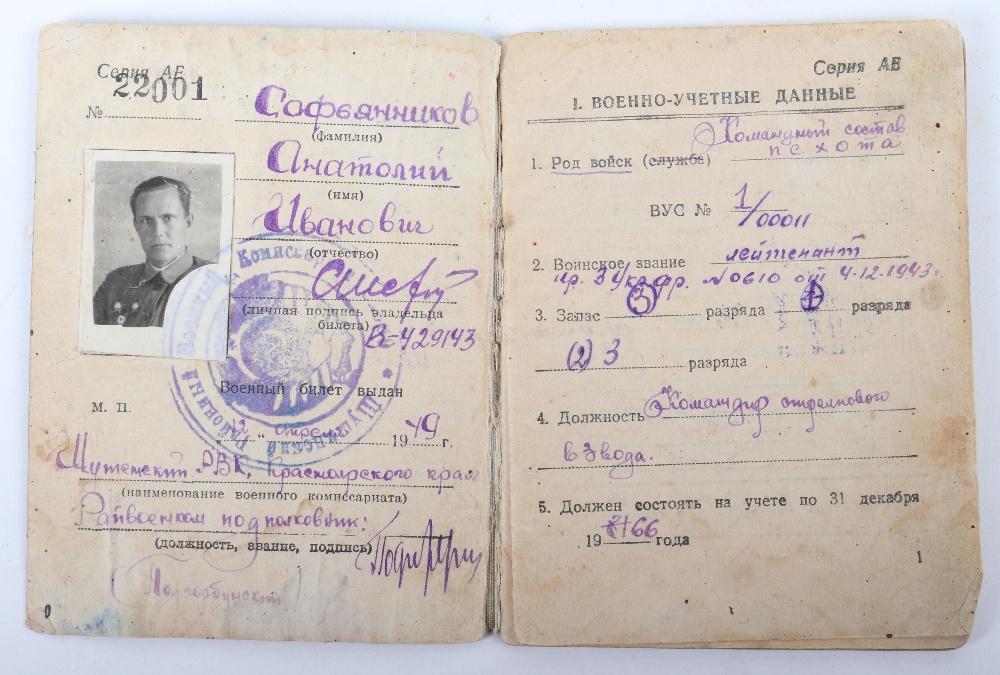 Серия АЕ
№ 22001
Софьянников
(фамилия)
Анатолий
(имя)
Иванович
(отчество)
(личная подпись владельца
билета)
В-429143
Военный билет выдан
М. П.
"2" апреля 1949 г.
РВК, Красноярского края
(наименование военного комиссариата)
Райвоенком подполковник:
(должность, звание, подпись)
Серия АЕ
I. ВОЕННО-УЧЕТНЫЕ ДАННЫЕ
Командный состав
1. Род войск (служба) пехота
ВУС № 1/00011
2. Воинское звание лейтенант
пр. 3 Укр.фр. № 0610 от 4.12.1943г.
3. Запас 3 разряда 1 разряда
(2) 3 разряда
4. Должность Командир стрелкового
взвода.
5. Должен состоять на учете по 31 декабря
1966 года
1